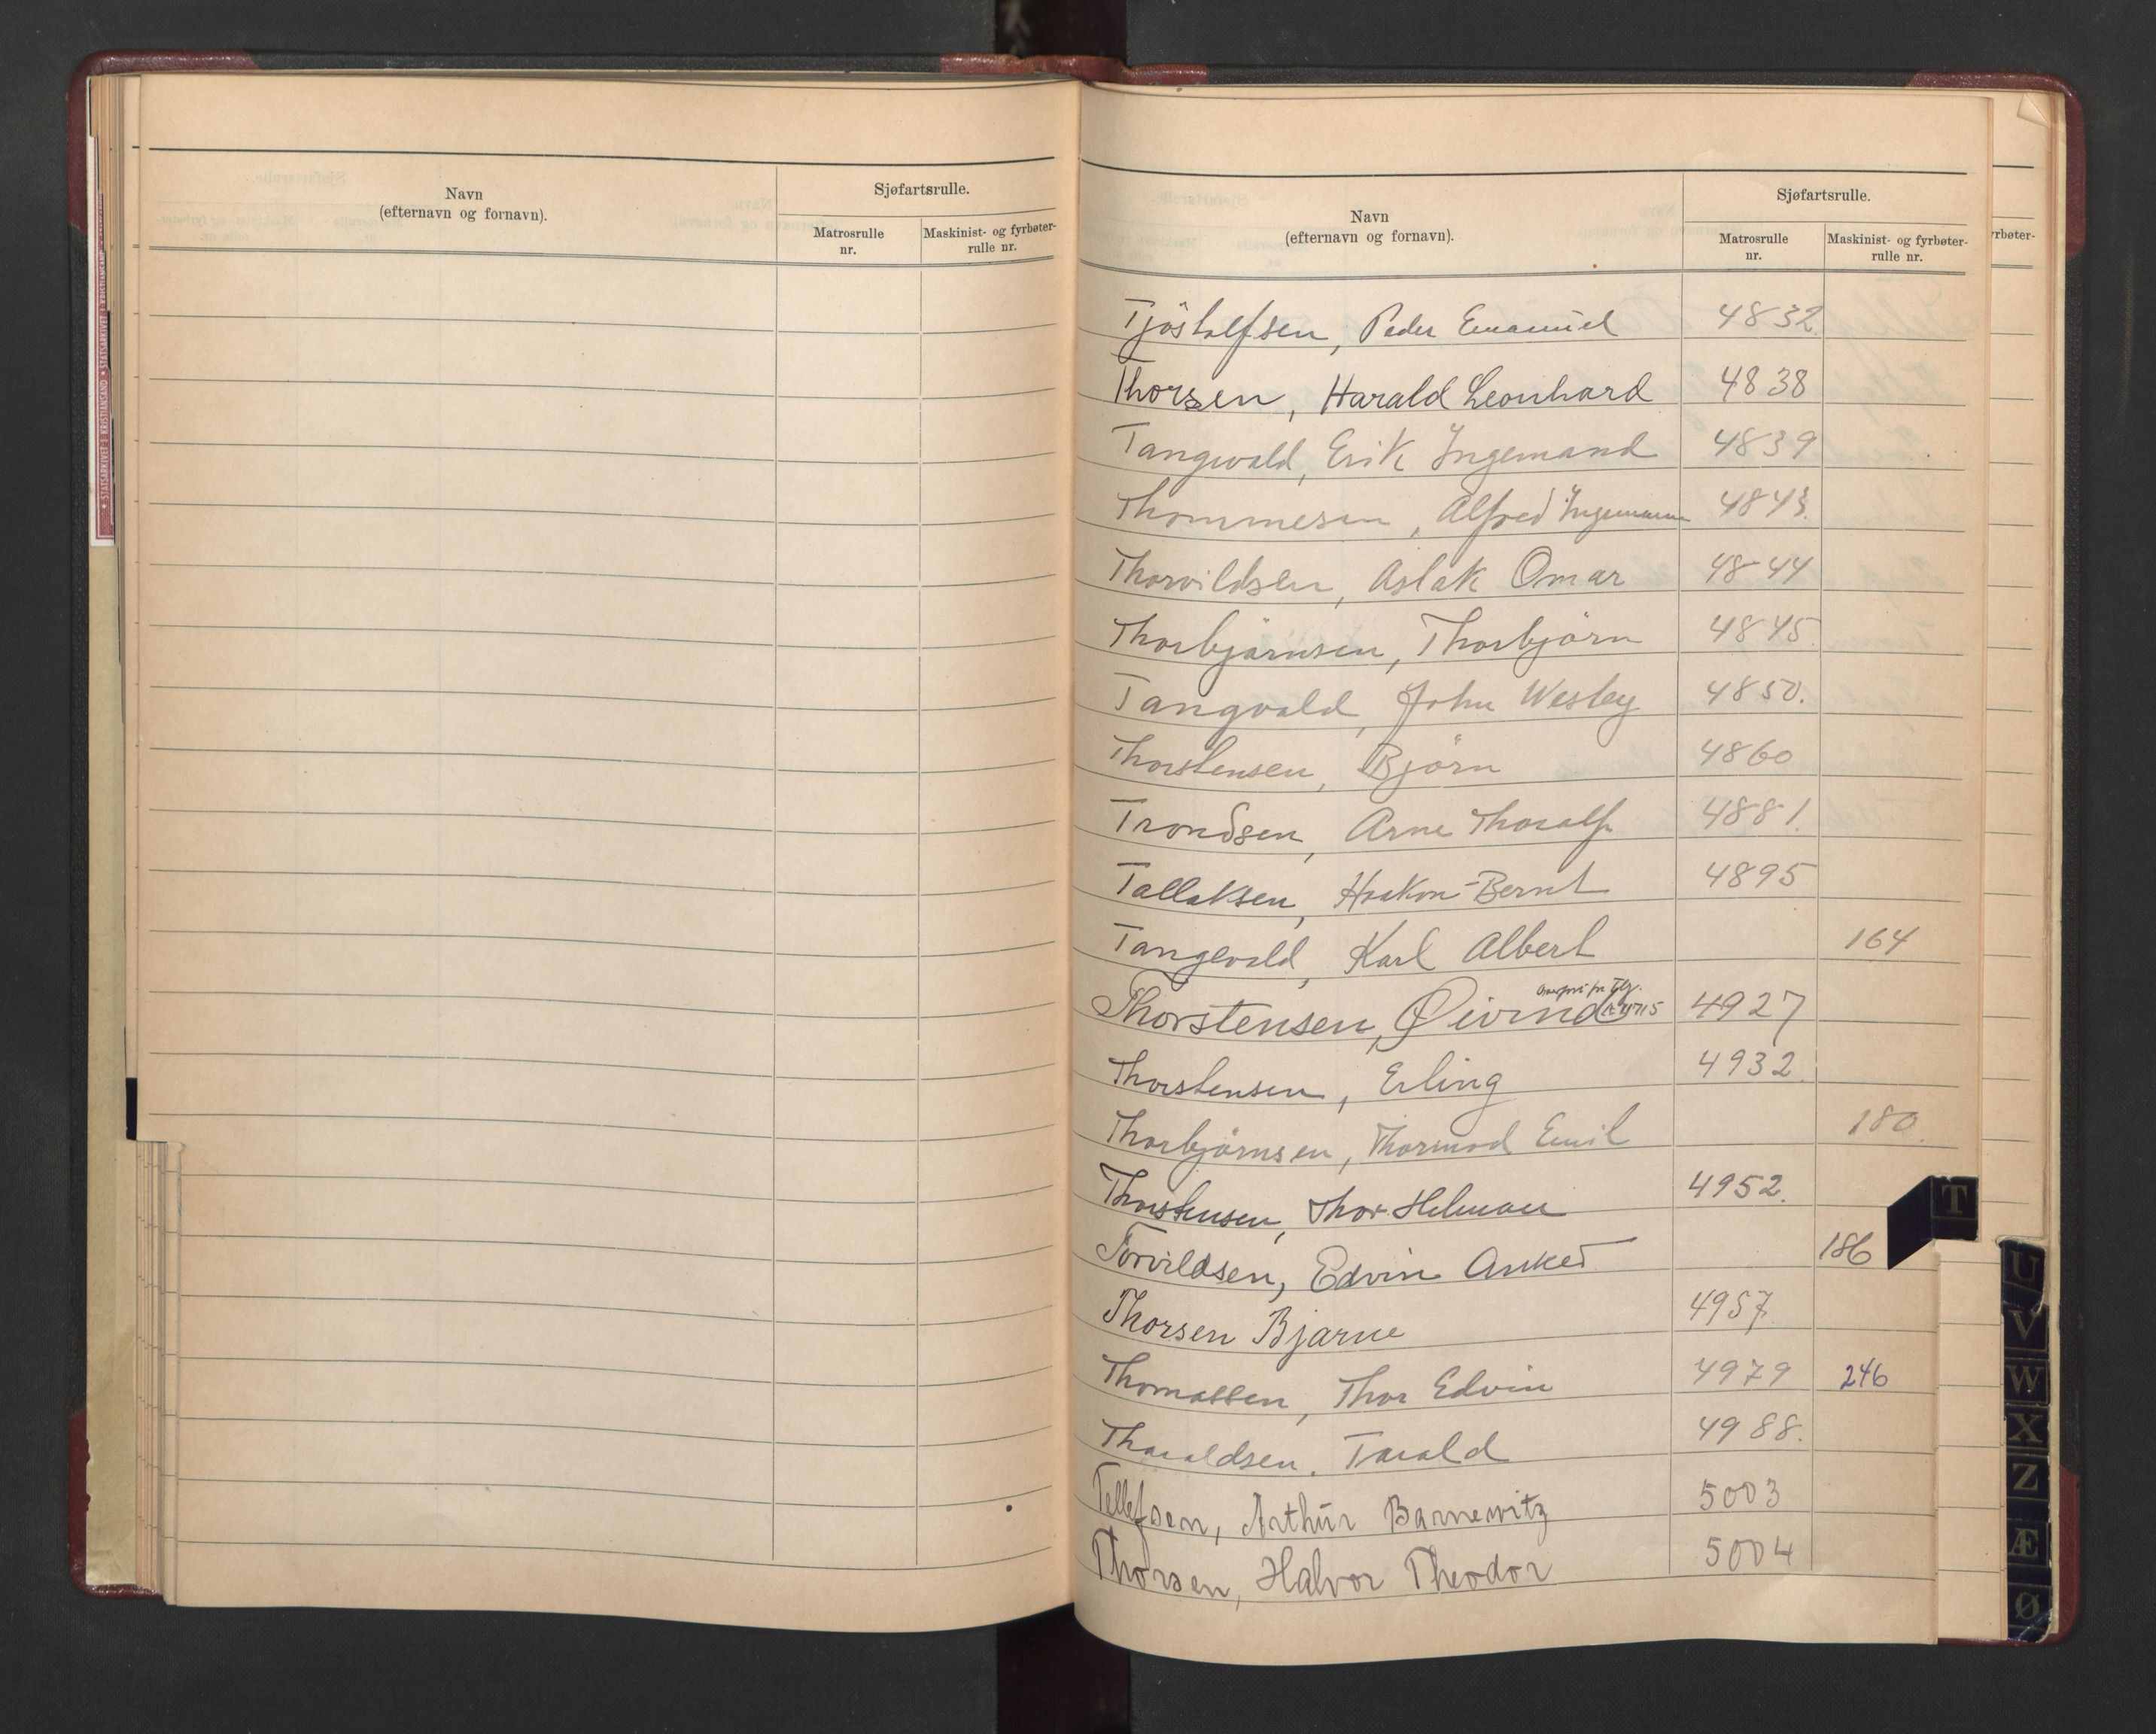 Navn
(efternavn og fornavn).
Sjøfartsrulle.
Matrosrulle
nr.
Maskinist- og fyrbøter-
rulle nr.
Navn
(efternavn og fornavn).
Sjøfartsrulle.
Matrosrulle
nr.
Maskinist- og fyrbøter-
rulle nr.
yrbøter-
Tjöstolfsen, Peder Emanuel 4832.
Thorsen, Harald Leonhard 4838
Tangvald, Erik Ingemand 4839
Thommesen, Alfred Ingemann 4843.
Thorvildsen, Aslak Omar 4844
Thorbjörnsen, Thorbjörn 4845.
Tangvald, John Wesley 4850.
Thorstensen, Björn 4860
Trondsen, Arne Thoralf 4881.
Tallaksen, Haakon Bernt 4895
Tangevald, Karl Albert 164
Thorstensen, Øivind 4927
Thorstensen, Erling 4932.
Thorbjörnsen, Thormod Emil 180.
Thorstensen, Thor Helman 4952.
Torvildsen, Edvin Anked 186
Thorsen Bjarne 4957.
Thomassen, Thor Edvin 4979 246
Tharaldsen. Tarald 4988.
Tellefsen, Arthur Barnewitz 5003
Thorsen, Halvor Theodor 5004
T
U
V
W
X
Z
Æ
Ø
STATSARKIVET I KRISTIANSAND • STATSARKIVET I KRISTIANSAND